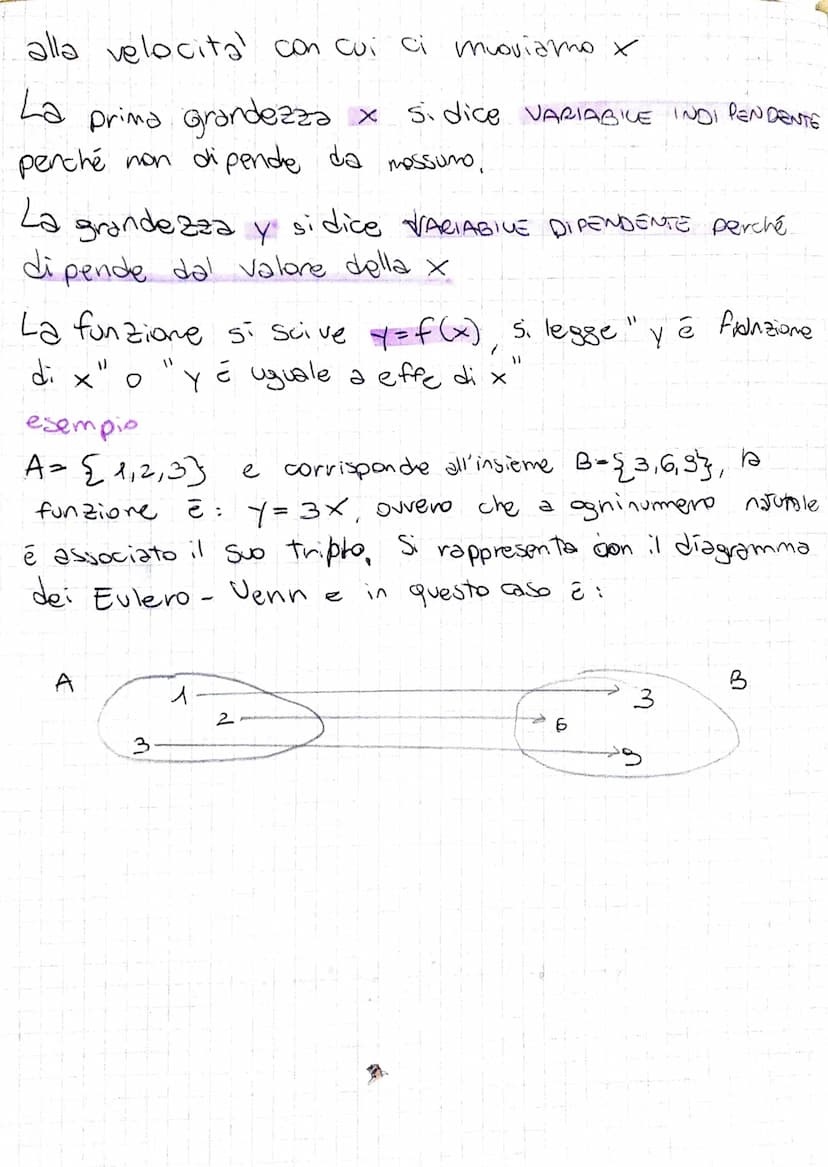 alla velocità con cui ci muoviamo x
La prima grandezza x si dice VARIABILE INDIPENDENTE
perché non dipende da nessuno.
La grandezza y si dice VARIABILE DIPENDENTE perché
dipende dal valore della x
La funzione si scive y=f(x), si legge "y è funzione
di x" o "y è uguale a effe di x"
esempio
A= {1,2,3} e corrisponde all'insieme B={3,6,9}, la
funzione è: y=3x, ovvero che a ogni numero naturale
è associato il suo triplo. Si rappresenta con il diagramma
dei Eulero - Venn e in questo caso è:
A B
1 3
2 6
3 9